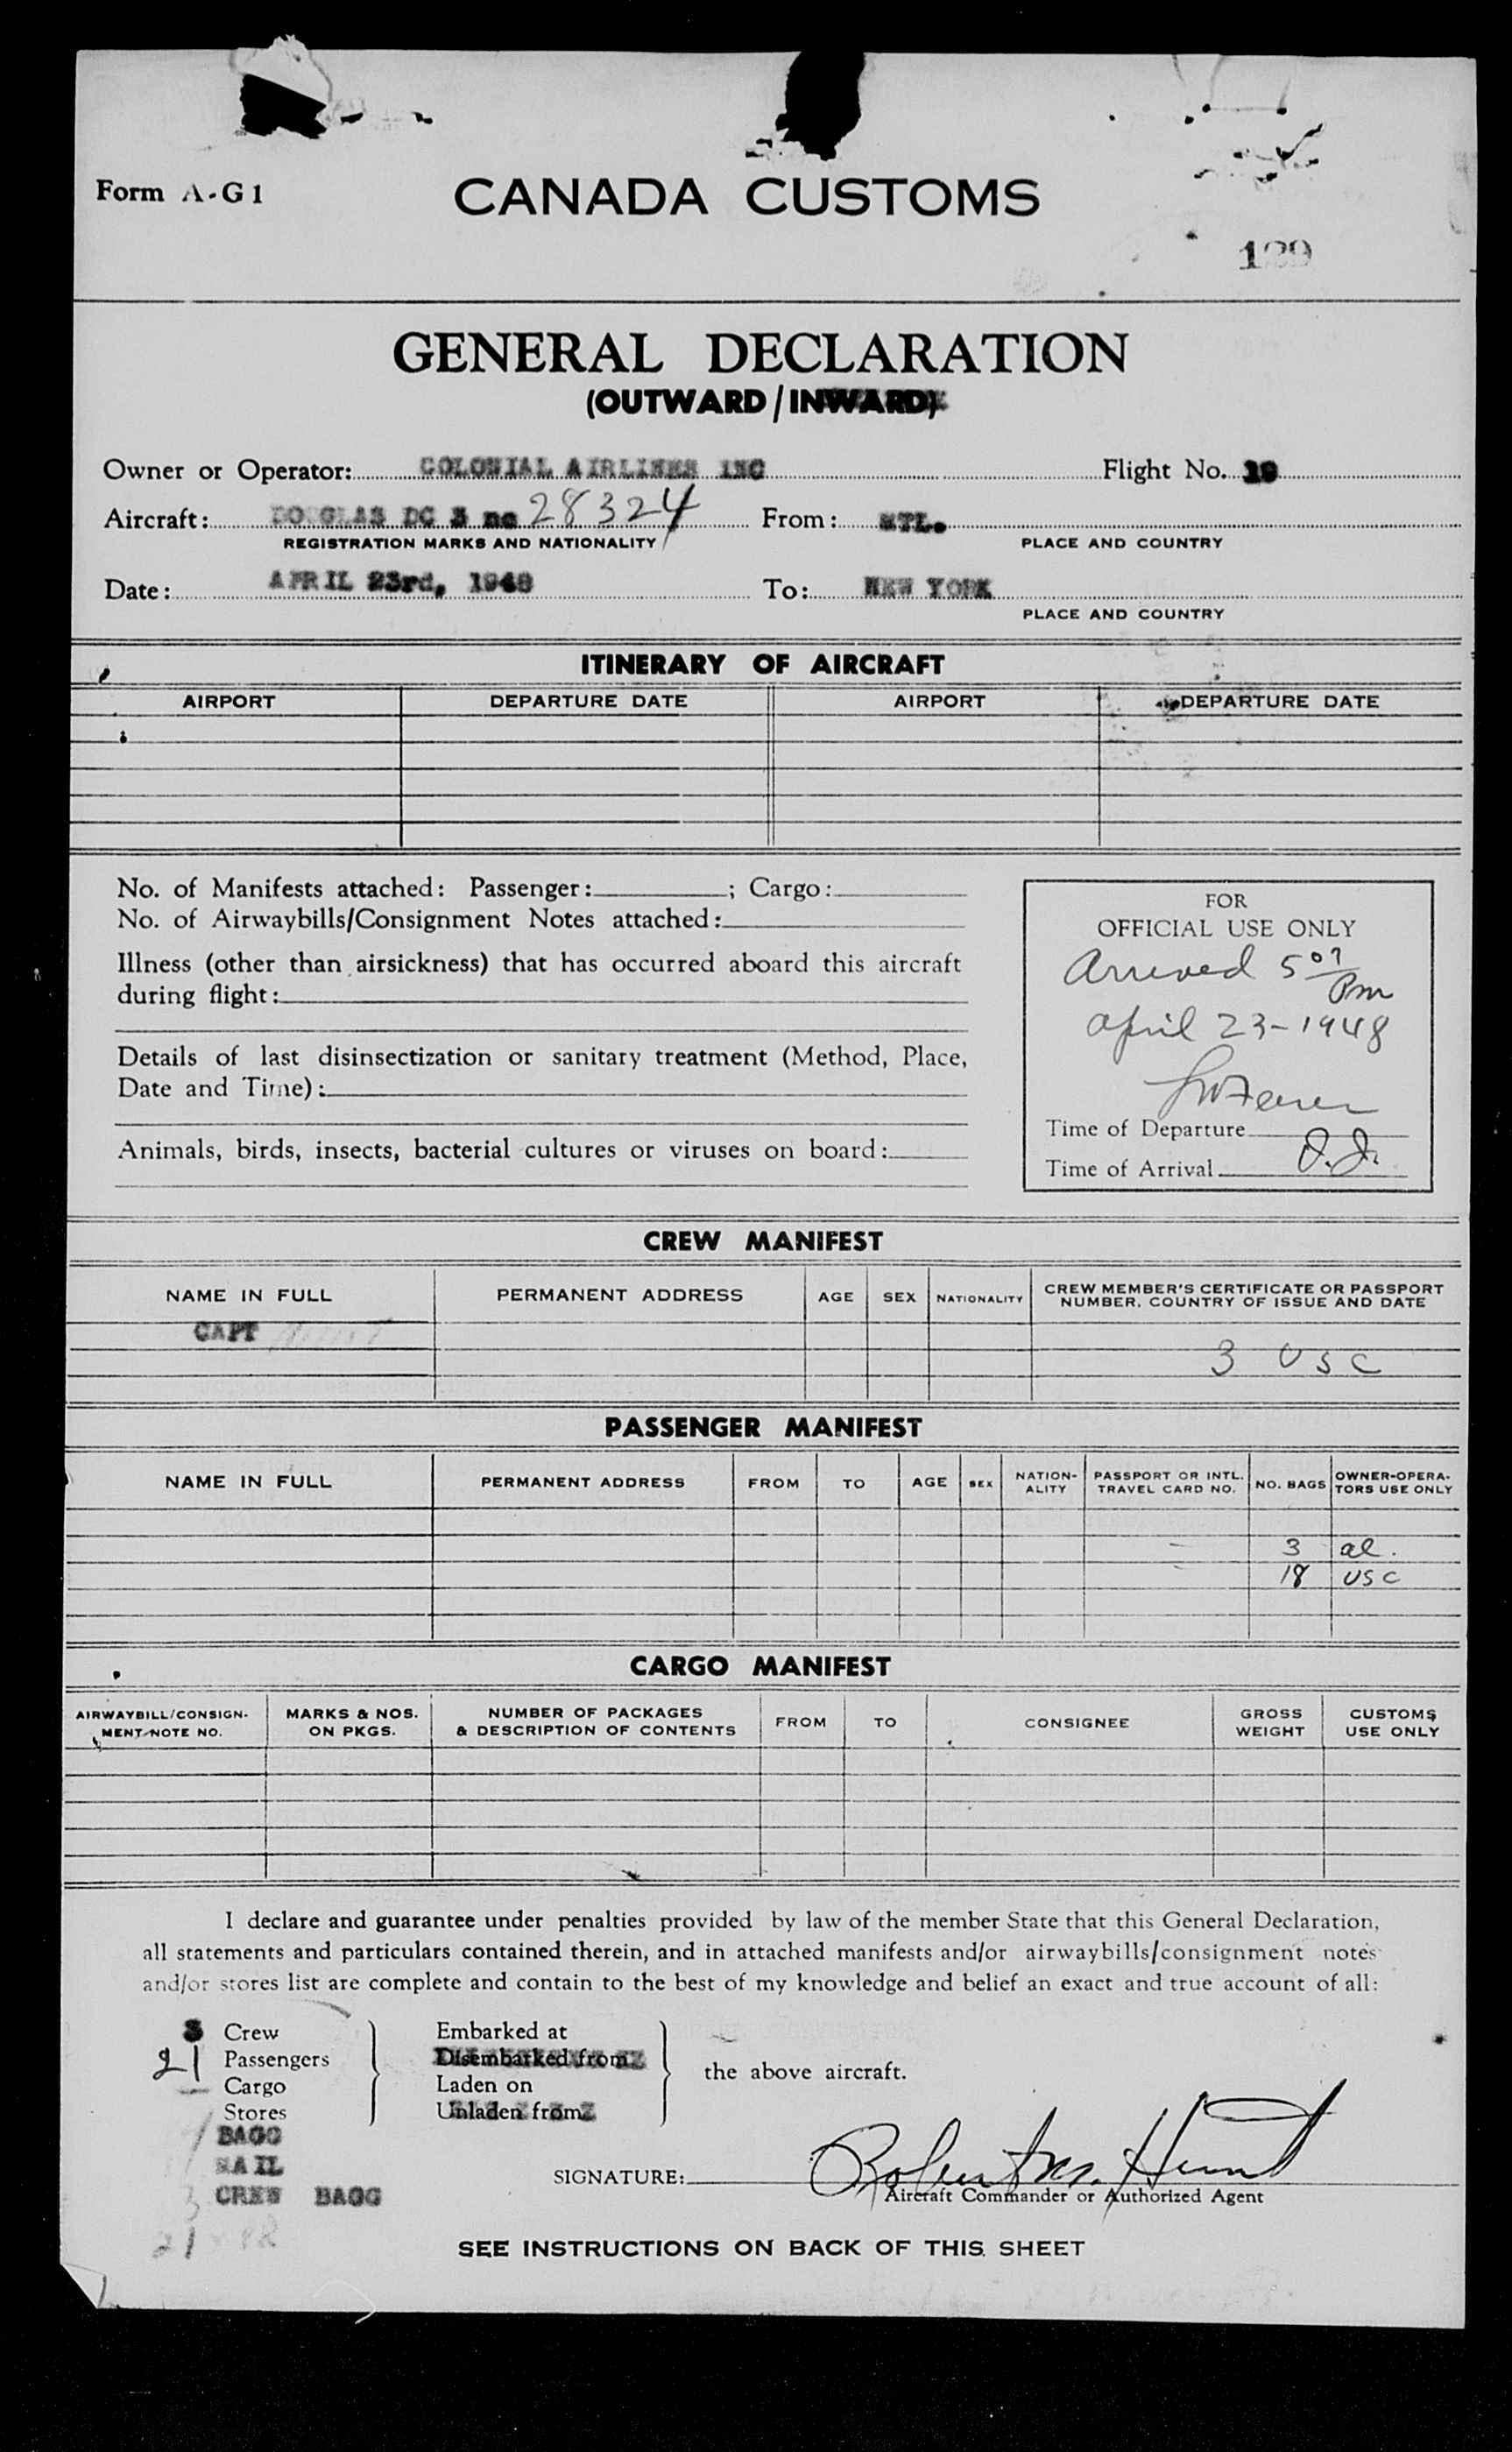 Form A-G1
CANADA CUSTOMS
GENERAL DECLARATION
(OUTWARD/INWARD)
Owner or Operator: COLONIAL AIRLINES INC Flight No. 19
Aircraft: DOUGLAS DC 3 nc 28324 From: MTL.
REGISTRATION MARKS AND NATIONALITY PLACE AND COUNTRY
Date: APRIL 23rd, 1948 To: NEW YORK
PLACE AND COUNTRY
ITINERARY OF AIRCRAFT
AIRPORT DEPARTURE DATE AIRPORT DEPARTURE DATE
No. of Manifests attached: Passenger: ; Cargo:
No. of Airwaybills/Consignment Notes attached:
Illness (other than airsickness) that has occurred aboard this aircraft
during flight:
Details of last disinsectization or sanitary treatment (Method, Place,
Date and Time):
Animals, birds, insects, bacterial cultures or viruses on board:
FOR
OFFICIAL USE ONLY
Arrived 5 07
Pm
April 23-1948
Time of Departure
Time of Arrival
CREW MANIFEST
NAME IN FULL PERMANENT ADDRESS AGE SEX NATIONALITY CREW MEMBER'S CERTIFICATE OR PASSPORT
NUMBER, COUNTRY OF ISSUE AND DATE
CAPT
3 USC
PASSENGER MANIFEST
NAME IN FULL PERMANENT ADDRESS FROM TO AGE SEX NATION-
ALITY PASSPORT OR INTL.
TRAVEL CARD NO. NO. BAGS OWNER-OPERA-
TORS USE ONLY
3 al.
18 USC
CARGO MANIFEST
AIRWAYBILL/CONSIGN-
MENT NOTE NO. MARKS & NOS.
ON PKGS. NUMBER OF PACKAGES
& DESCRIPTION OF CONTENTS FROM TO CONSIGNEE GROSS
WEIGHT CUSTOMS
USE ONLY
I declare and guarantee under penalties provided by law of the member State that this General Declaration,
all statements and particulars contained therein, and in attached manifests and/or airwaybills/consignment notes
and/or stores list are complete and contain to the best of my knowledge and belief an exact and true account of all:
3 Crew Embarked at
21 Passengers Disembarked from the above aircraft.
Cargo Laden on
Stores Unladen from
BAGG
MAIL
CREW BAGG
SIGNATURE: Robert M. Hunt
Aircraft Commander or Authorized Agent
SEE INSTRUCTIONS ON BACK OF THIS SHEET